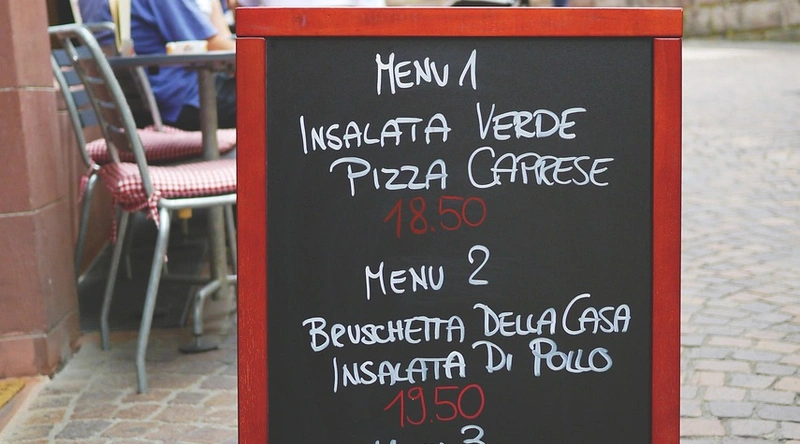 MENU 1
INSALATA VERDE
PIZZA CAPRESE
18.50
MENU 2
BRUSCHETTA DELLA CASA
INSALATA DI POLLO
19.50
MENU 3